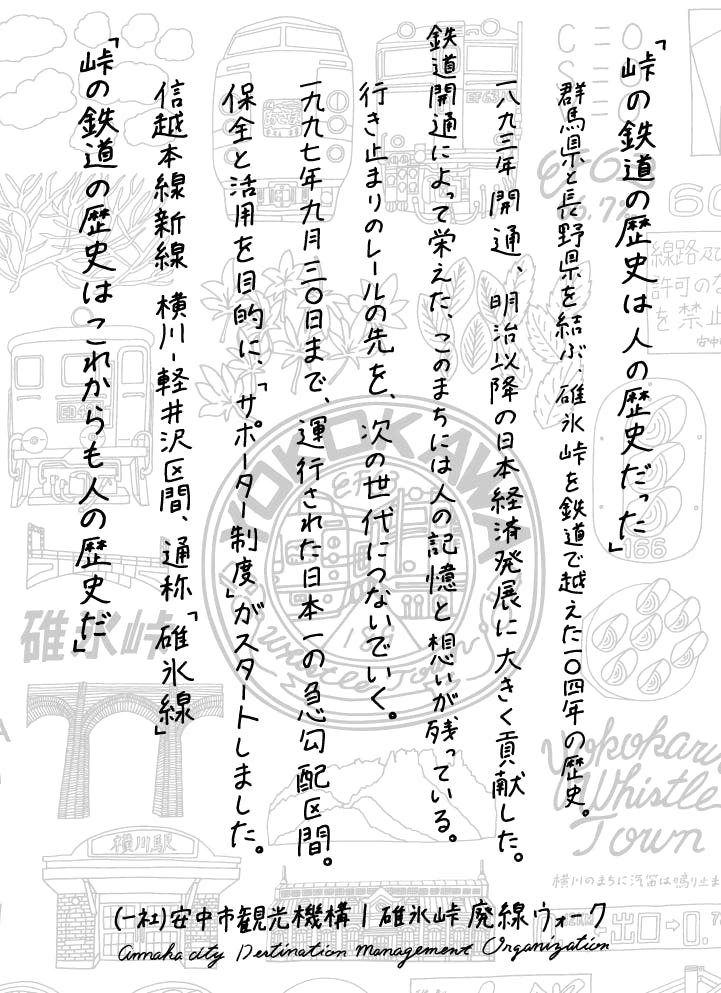 「峠の鉄道の歴史は人の歴史だった」
群馬県と長野県を結ぶ、碓氷峠を鉄道で越えた一〇四年の歴史。
一八九三年開通、明治以降の日本経済発展に大きく貢献した。
鉄道開通によって栄えた、このまちには人の記憶と想いが残っている。
行き止まりのレールの先を、次の世代につないでいく。
一九九七年九月三〇日まで、運行された日本一の急勾配区間。
保全と活用を目的に、「サポーター制度」がスタートしました。
信越本線新線 横川-軽井沢区間、通称「碓氷線」
「峠の鉄道の歴史はこれからも人の歴史だ」
(一社)安中市観光機構|碓氷峠廃線ウォーク
annaka city Destination Management Organization
YOKOKAWA
碓氷峠
横川駅
Yokokawa
Whistle
Town
横川のまちに汽笛は鳴り止ま
線路及び
許可のな
を禁止
安中
166
出口→0.